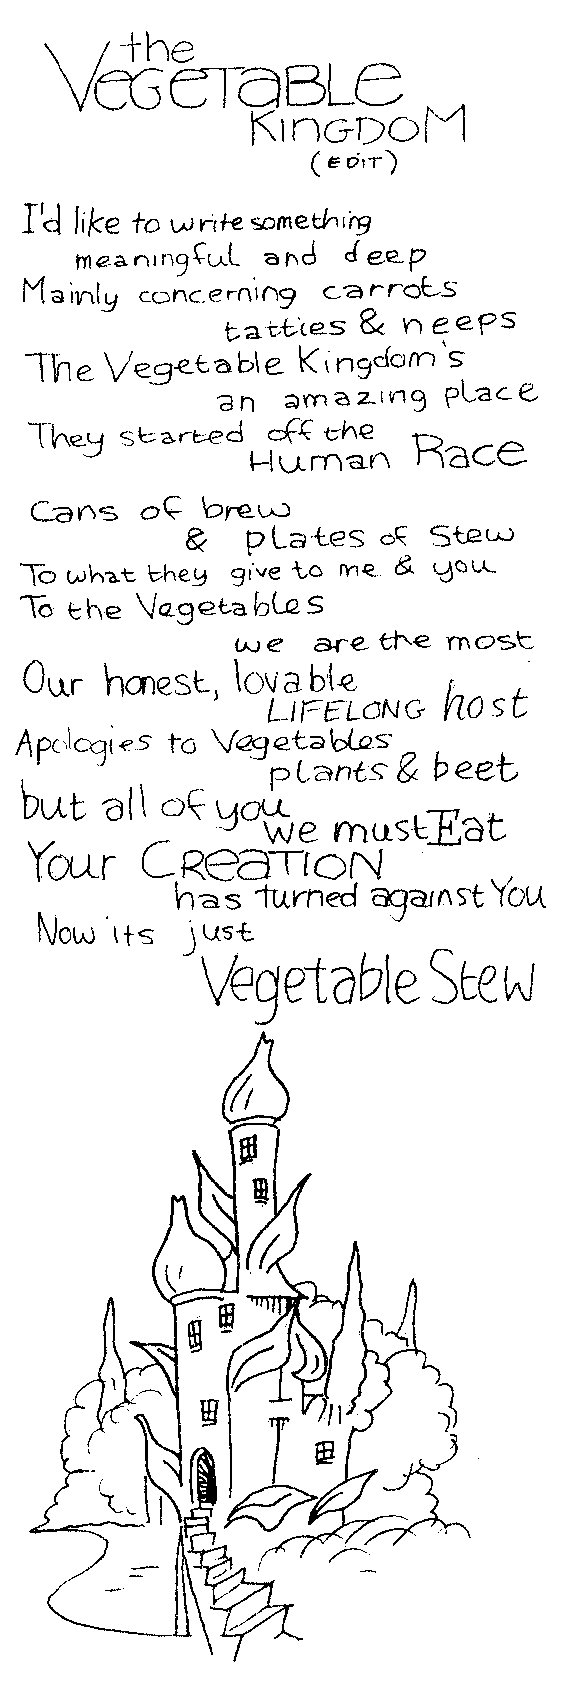 the
VEGETABLE
KINGDOM
(EDIT)
I'd like to write something
meaningful and deep
Mainly concerning carrots
tatties & neeps
The Vegetable Kingdom's
an amazing place
They started off the
Human Race
Cans of brew
& plates of Stew
To what they give to me & you
To the Vegetables
we are the most
Our honest, lovable
LIFELONG host
Apologies to Vegetables
plants & beet
but all of you
we must Eat
Your CREATION
has turned against You
Now its just
Vegetable Stew